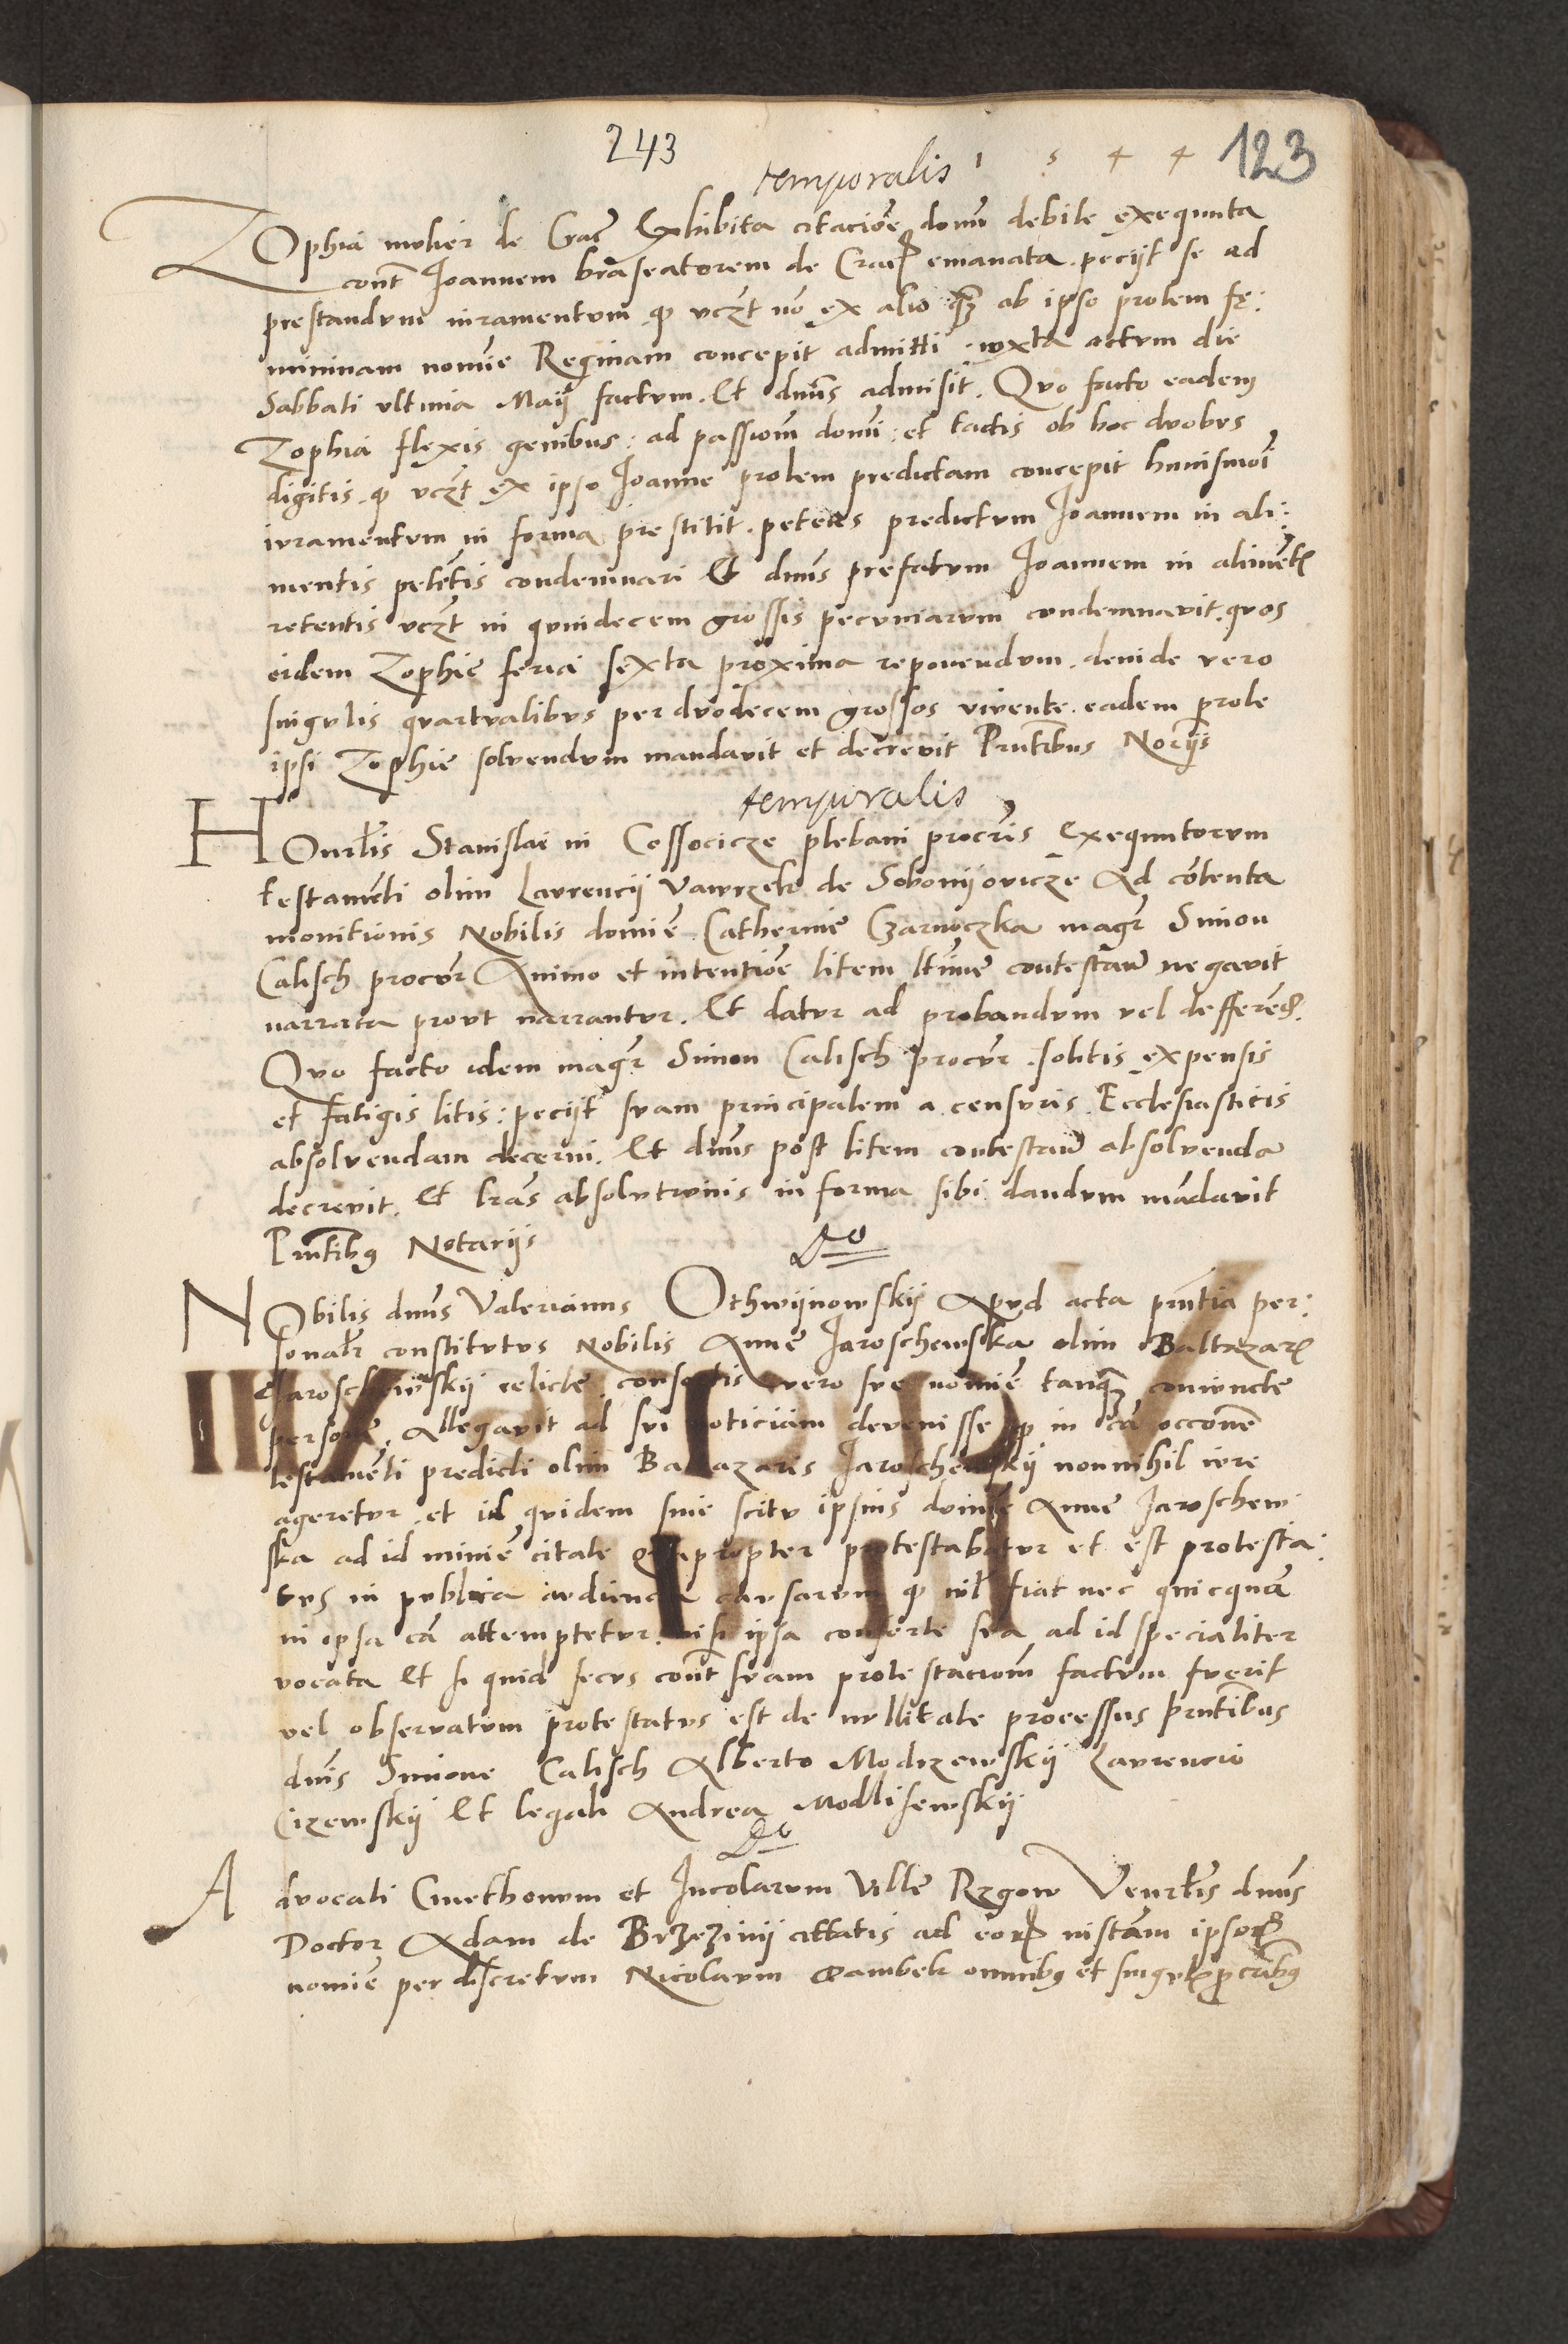 243
1 5 4 4 123
temporalis
Zophia mulier de Crac̄ Exhibita citacione domi debite exequuta
contr̄ Ioannem braseatorem de Crac̄ emanata. peciit se ad
prestandum iuramentum q uczt no ex alio q̄ ab ipso prolem fę:
mininam nomine Reginam concepit admitti iuxta actum die
Sabbati ultima Maij factum. Et dn̄us admisit. Quo facto eadem
Zophia flexis genibus: ad passionem domini: et tactis ob hoc duobus
digitis. q uczt ex ipso Ioanne prolem predictam concepit huiusmōi
iuramentum in forma prestitit. petens predictum Ioannem in ali:
mentis petētis condemnari Et dn̄us prefatum Ioannem in alimētis
retentis uczt in quindecem grossis pecuniarum condemnavit. quos
eidem Zophie feria sexta proxima reponendum. deinde vero
singulis quartualibus per duodecem grossos vivente eadem prole
ipsi Zophie solvendum mandavit et decrevit Prn̄tibus Norijs
temporalis
Honrl̄is Stanislai in Cossocicze plebani procr̄is Exequutorum
testamenti olim Laurencij Vawrzek de Sobonijovicze Ad contenta
monitionis Nobilis domine Catherine Czarnoczka magr̄ Simon
Calisch procr̄ Animo et intentione litem ltime contestan̄ negavit
narrata prout narrantur. Et datur ad probandum vel defferend.
Quo facto idem magr̄ Simon Calisch procr̄. solitis expensis
et fatigis litis: peciit suam principalem a censuris Ecclesiasticis
absolvendam decerni. Et dn̄us post litem contestan̄ absolvenda
decrevit. Et lr̄as absolutionis in forma sibi dandum mādavit
Prn̄tibus Notarijs
Do
Nobilis dn̄us Valerianus Othwijnowskij Apud acta prn̄tia per:
sonalr̄ constitutus Nobilis Anne Jaroschewska olim Baltazaris
Jaroschewskij relicte consortis vero sue nomine tanq̄ coniuncte
persone. Allegavit ad sui noticiam devenisse q in cā occone
testamenti predicti olim Baltazaris Jaroschewskij nonnihil iure
ageretur. et id quidem sine scitu ipsius domine Anne Jaroschew
ska ad id minime citate quapropter protestabatur et est protesta:
tus in publica audiencia causarum q nil fiat nec quicquam
in ipsa cā attemptetur. nisi ipsa consorte sua ad id specialiter
vocata Et si quid secus contr̄ suam protestacionem factum fuerit
vel observatum protestatus est de nullitate processus Prn̄tibus
dn̄is Simone Calisch Alberto Modrzewskij Laurencio
Cizewskij Et legali Andrea Modlisewskij
Do
Advocati Cmethonum et Incolarum Ville Rzgow Venrl̄is dn̄us
Doctor Adam de Brzezinij citatis ad eor̄ instām ipsor̄
nomine per discretum Nicolaum Gambek omnibus et singulis